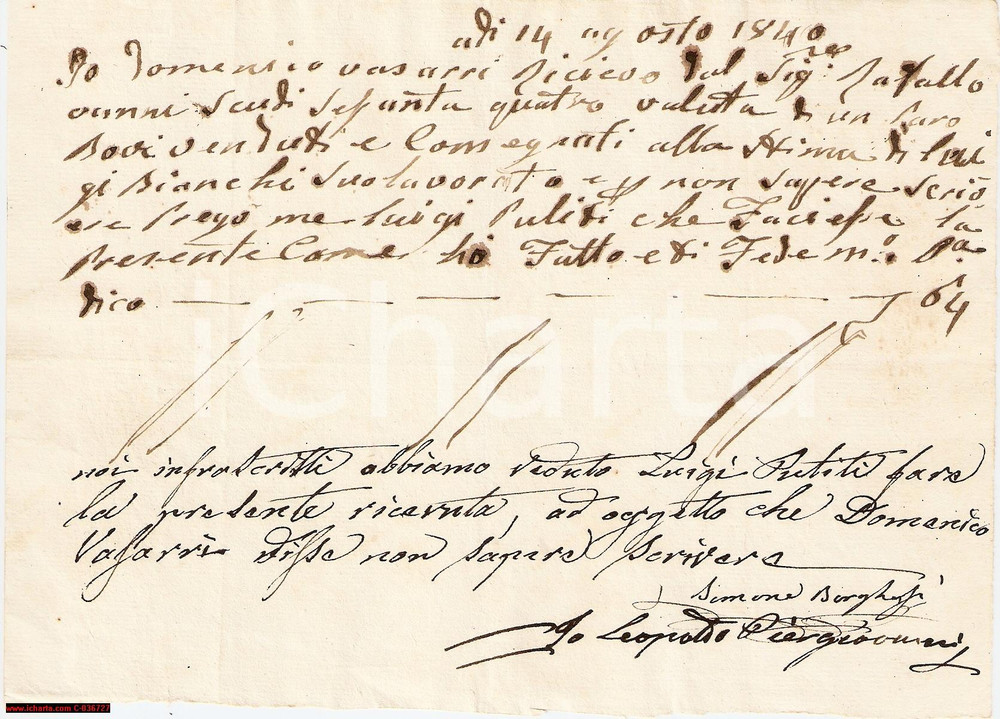 adi 14 agosto 1840
Io Domenico vasarri Ricievo dal Sigre Rafallo
vanni Scudi Sesanta quatro valuta di un Paro
Bovi venduti e Consegniati alla Stima di Lui
gi Bianchi Suo lavorato e p non sapere scriv
ere Prego me Luigi Puliti che Faciesse la
presente Come ho Fatto e di Fede mo. Pa
dico 64
iCharta
noi infrascritti abbiamo veduto Luigi Puliti fare
la presente ricevuta, ad oggetto che Domenico
Vasarri disse non sapere scrivere
Simone Borghesi
Io Leopoldo Piergiovanni
www.icharta.com C-036727